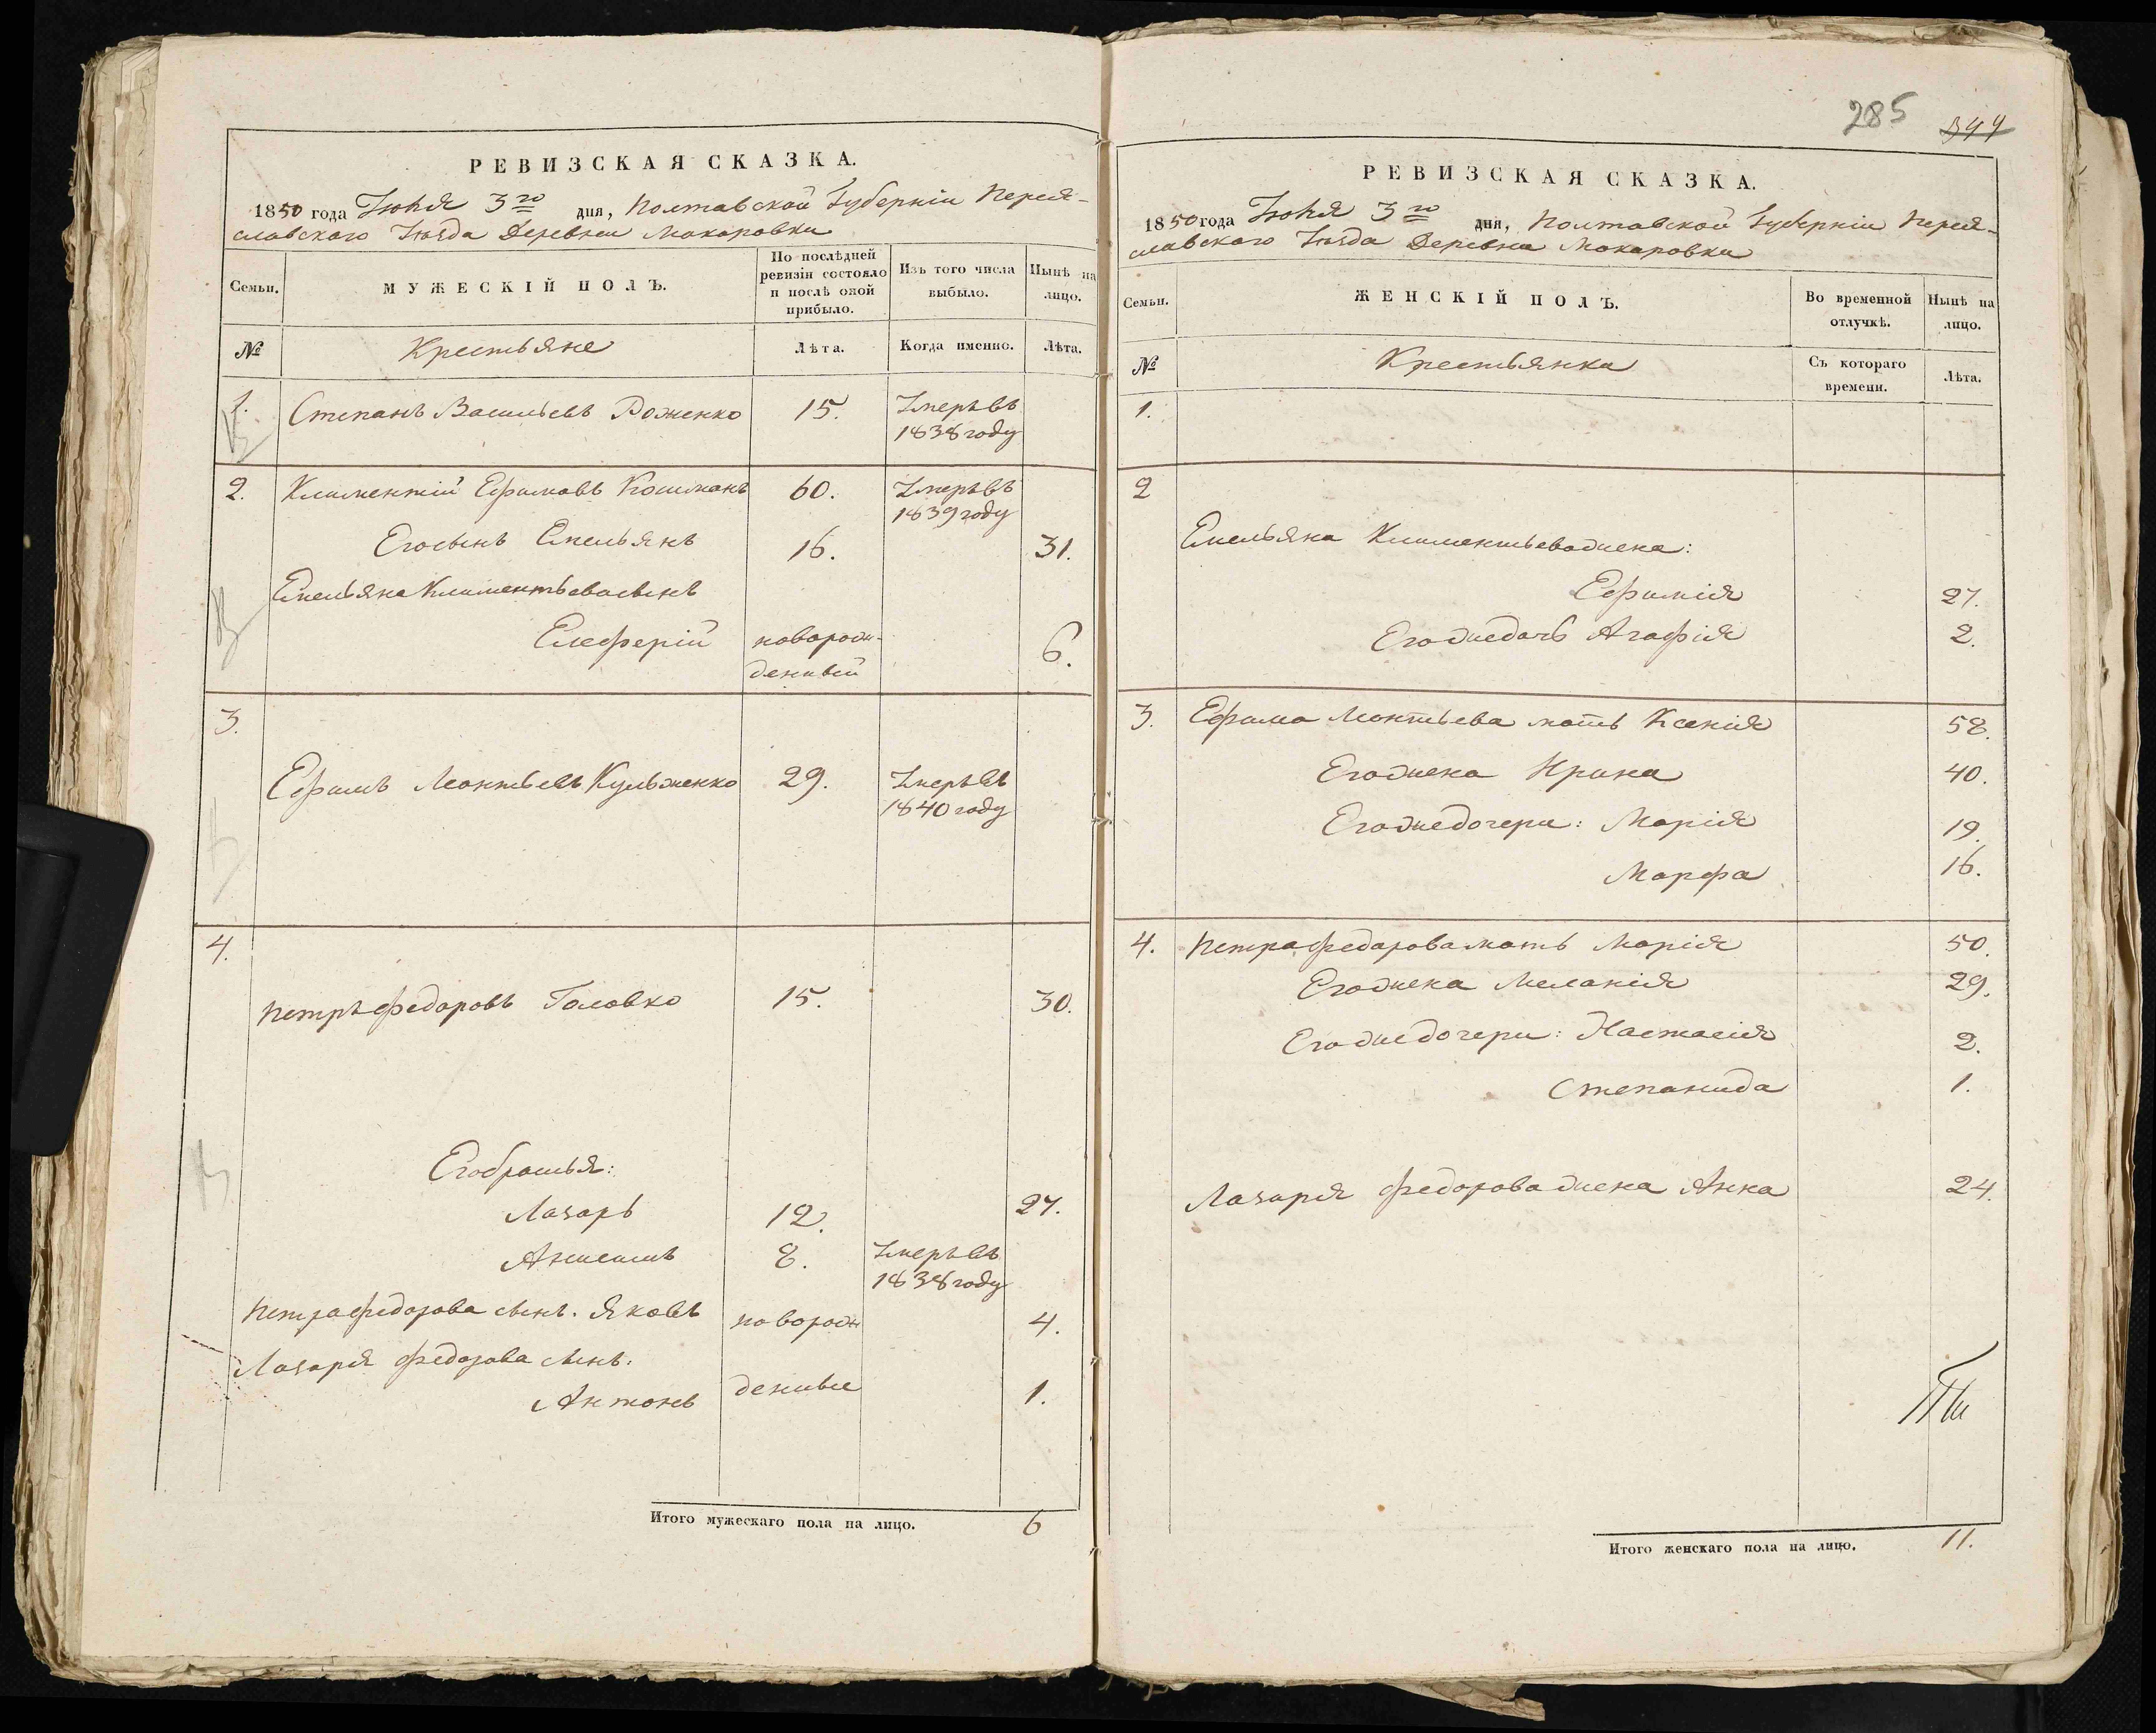 РЕВИЗСКАЯ СКАЗКА.
1850 года Іюня 3го дня, Полтавской Губерніи Перея-
славскаго Уѣзда Деревни Макаровки
Семьи.
МУЖЕСКІЙ ПОЛЪ.
По послѣдней ревизіи состояло и послѣ оной прибыло.
Изъ того числа выбыло.
Нынѣ на лицо.
№ Крестьяне Лѣта. Когда именно. Лѣта.
1. Степанъ Васильевъ Роженко 15. Умеръ въ
1838 году
2. Климентій Ефимовъ Кошманъ 60. Умеръ въ
1839 году
Его сынъ Емельянъ 16. 31.
Емельяна Климентьева сынъ
Елеферій новорож- 6.
денный
3.
Ефимъ Леонтьевъ Кульженко 29. Умеръ въ
1840 году
4.
Петръ Федоровъ Головко 15. 30.
Его братья:
Лазарь 12. 27.
Анисимъ 8. Умеръ въ
1838 году
Петра Федорова сынъ. Яковъ новорож 4.
Лазаря Федорова сынъ:
Антонъ денные 1.
Итого мужескаго пола на лицо. 6
285 344
РЕВИЗСКАЯ СКАЗКА.
1850 года Іюня 3го дня, Полтавской Губерніи Перея-
славскаго Уѣзда Деревни Макаровки
Семьи.
ЖЕНСКІЙ ПОЛЪ.
Во временной отлучкѣ.
Нынѣ на лицо.
№ Крестьянки Съ котораго времени. Лѣта.
1.
2
Емельяна Климентьева жена:
Ефимія 27.
Его же дочь Агафія 2.
3. Ефима Леонтьева мать Ксенія 58.
Его жена Ирина 40.
Его же дочери: Марія 19.
Марфа 16.
4. Петра Федорова мать Марія 50.
Его жена Меланія 29.
Его же дочери: Настасія 2.
Степанида 1.
Лазаря Федорова жена Анна 24.
Итого женскаго пола на лицо. 11.